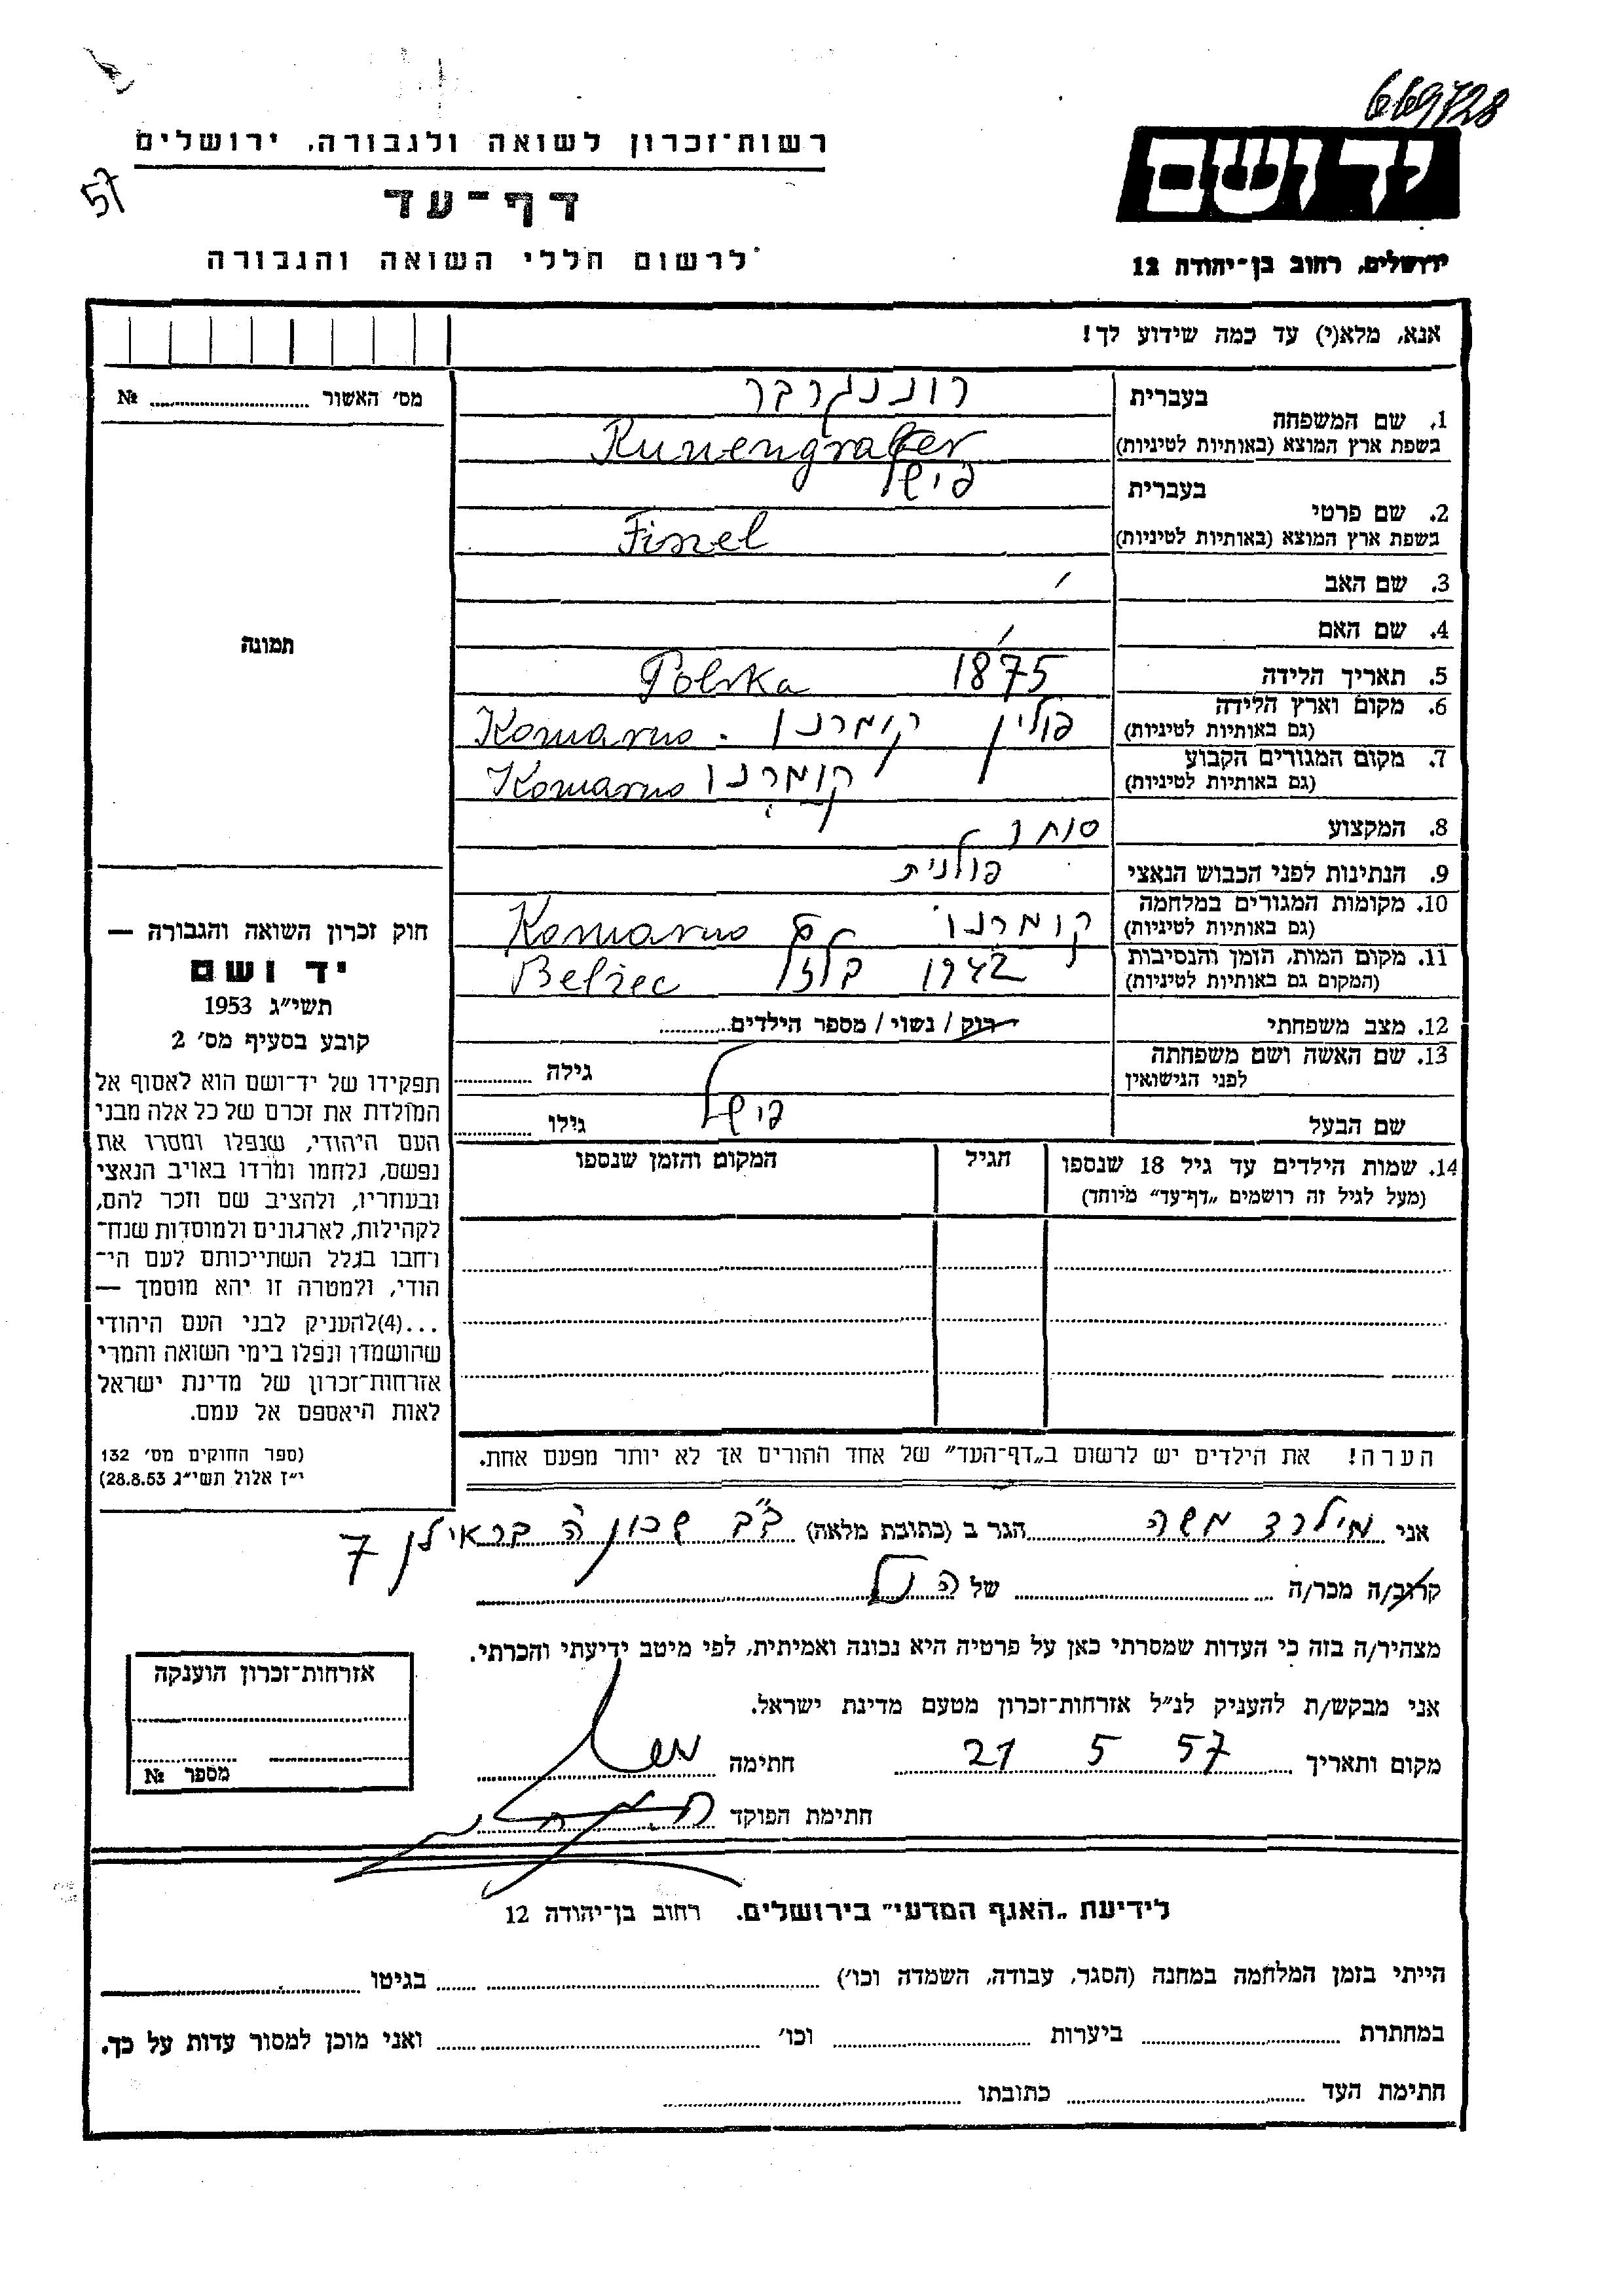 669728
רשות־זכרון לשואה ולגבורה, ירושלים
יד ושם
57
דף־עד
לרשום חללי השואה והגבורה
ירושלים, רחוב בן־יהודה 12
אנא, מלא(י) עד כמה שידוע לך!
מס׳ האשור № 
1. שם המשפחה
בעברית רוננגרבר
בשפת ארץ המוצא (באותיות לטיניות) Runengraber
2. שם פרטי
בעברית פישל
בשפת ארץ המוצא (באותיות לטיניות) Fiszel
3. שם האב /
4. שם האם /
5. תאריך הלידה 1875 Polska
6. מקום וארץ הלידה פולין קומרנו . Komarno
(גם באותיות לטיניות)
7. מקום המגורים הקבוע קומרנו Komarno
(גם באותיות לטיניות)
8. המקצוע סוחר
9. הנתינות לפני הכבוש הנאצי פולנית
10. מקומות המגורים במלחמה קומרנו Komarno
(גם באותיות לטיניות)
11. מקום המות, הזמן והנסיבות 1942 בלז Belżec
(המקום גם באותיות לטיניות)
12. מצב משפחתי רווק / נשוי / מספר הילדים
13. שם האשה ושם משפחתה
לפני הנישואין
גילה
שם הבעל פישל גילו
14. שמות הילדים עד גיל 18 שנספו
(מעל לגיל זה רושמים „דף־עד״ מיוחד)
הגיל
המקום והזמן שנספו
הערה! את הילדים יש לרשום ב„דף־העד״ של אחד ההורים אך לא יותר מפעם אחת.
תמונה
חוק זכרון השואה והגבורה —
יד ושם
תשי״ג 1953
קובע בסעיף מס׳ 2
תפקידו של יד־ושם הוא לאסוף אל
המולדת את זכרם של כל אלה מבני
העם היהודי, שנפלו ומסרו את
נפשם, נלחמו ומרדו באויב הנאצי
ובעוזריו, ולהציב שם וזכר להם,
לקהילות, לארגונים ולמוסדות שנח־
רחבו בגלל השתייכותם לעם הי־
הודי, ולמטרה זו יהא מוסמך —
...(4)להעניק לבני העם היהודי
שהושמדו ונפלו בימי השואה והמרי
אזרחות־זכרון של מדינת ישראל
לאות היאספם אל עמם.
(ספר החוקים מס׳ 132
י״ז אלול תשי״ג 28.8.53)
אני מילרד משה הגר ב (כתובת מלאה) ב״ב שכון ה׳ בר אילן 7
קרוב/ה מכר/ה של הנ״ל
מצהיר/ה בזה כי העדות שמסרתי כאן על פרטיה היא נכונה ואמיתית, לפי מיטב ידיעתי והכרתי.
אני מבקש/ת להעניק לנ״ל אזרחות־זכרון מטעם מדינת ישראל.
מקום ותאריך 21 5 57 חתימה
חתימת הפוקד
אזרחות־זכרון הוענקה
מספר №
לידיעת „האגף המדעי״ בירושלים, רחוב בן־יהודה 12
הייתי בזמן המלחמה במחנה (הסגר, עבודה, השמדה וכו׳) בגיטו
במחתרת ביערות וכו׳ ואני מוכן למסור עדות על כך.
חתימת העד כתובתו